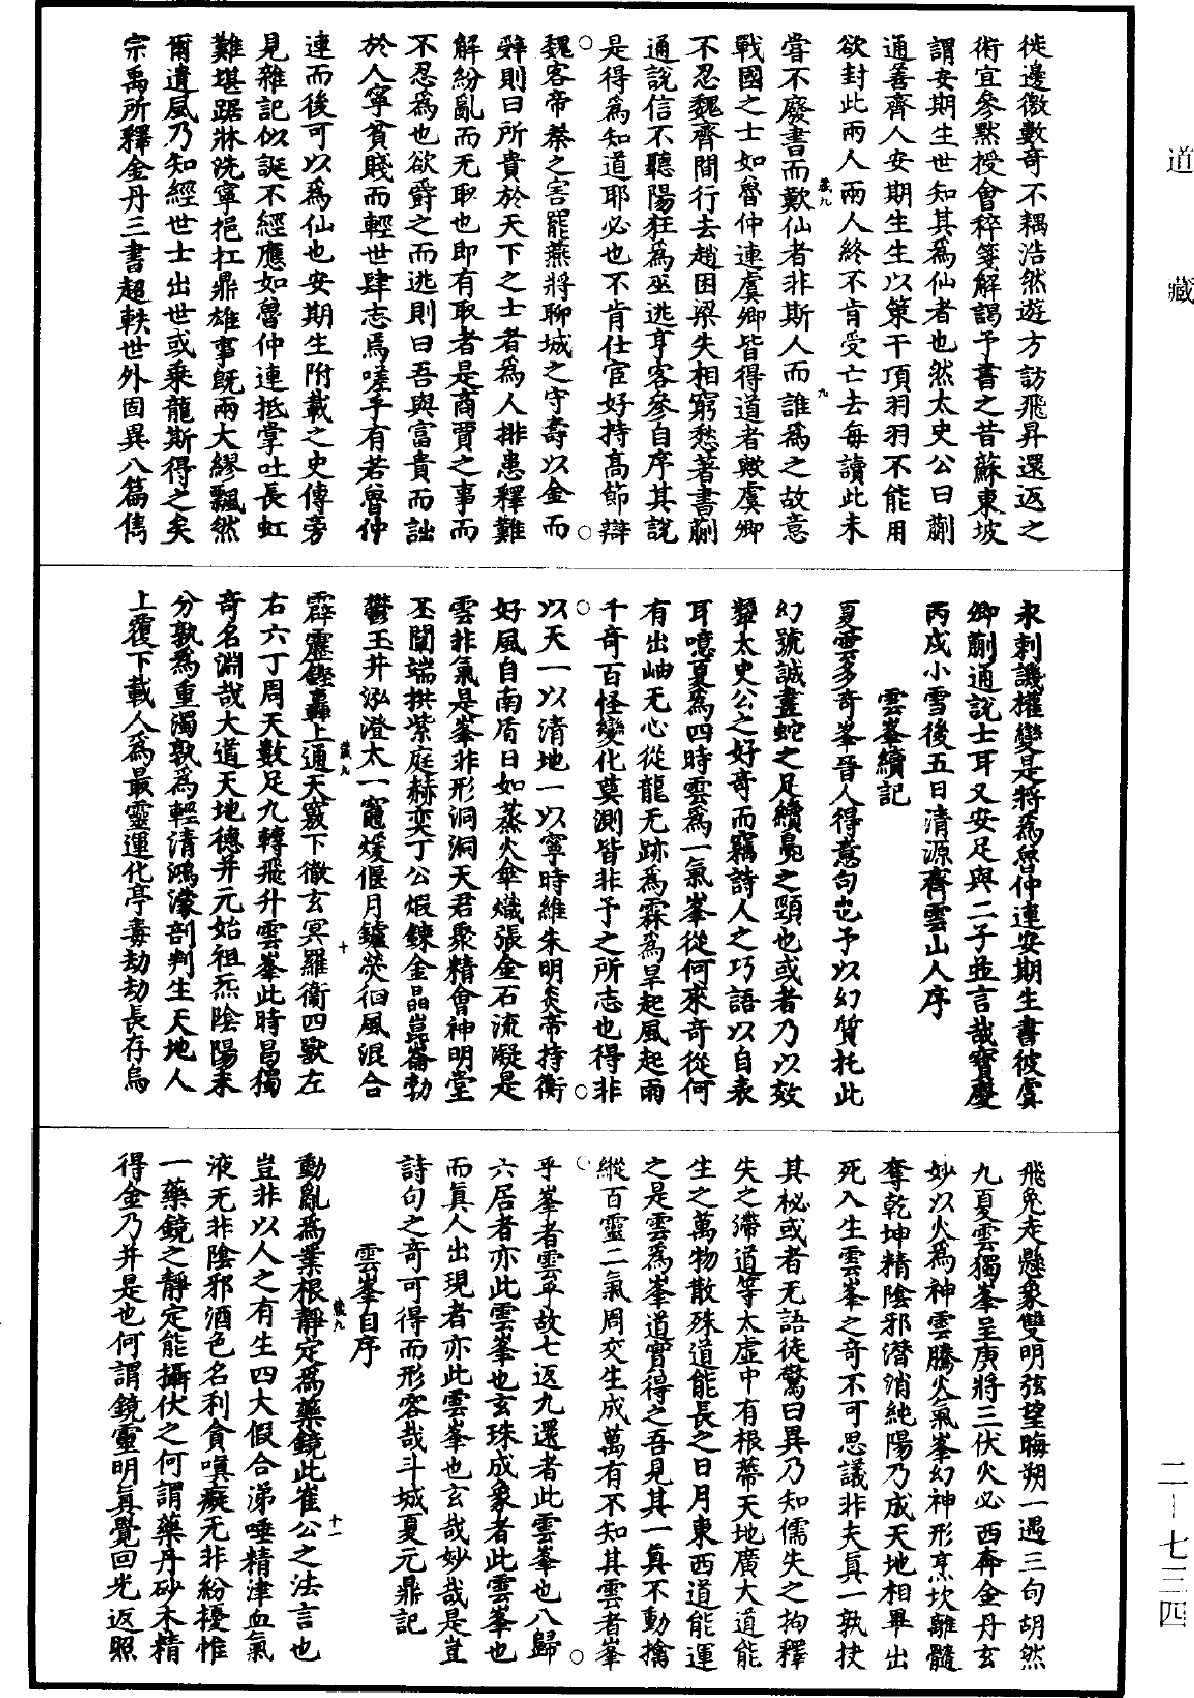 道藏
徙邊徼數奇不耦浩然遊方訪飛昇還返之
術宜參黙授會稡箋解謁予書之昔蘇東坡
謂安期生世知其爲仙者也然太史公曰蒯
通善齊人安期生生以策干項羽羽不能用
欲封此兩人兩人終不肯受亡去每讀此未
嘗不廢書而歎仙者非斯人而誰爲之故意
歳九 九
戰國之士如魯仲連虞卿皆得道者歟虞卿
不忍魏齊間行去趙困梁失相窮愁著書蒯
通說信不聽陽狂爲巫逃亨客參自序其說
是得爲知道耶必也不肯仕宦好持高節辯
魏客帝秦之害罷燕將聊城之守壽以金而
辤則曰所貴於天下之士者爲人排患釋難
解紛亂而无取也即有取者是商賈之事而
不忍爲也欲爵之而逃則曰吾與富貴而詘
於人寧貧賤而輕世肆志焉嗟乎有若魯仲
連而後可以爲仙也安期生附載之史傳旁
見雜記似誕不經應如魯仲連抵掌吐長虹
難堪踞牀洗寧挹扛鼎雄事旣兩大繆飄然
爾遺風乃知經世士出世或乗龍斯得之矣
宗禹所釋金丹三書超軼世外固異八篇雋
永刺譏權變是將爲魯仲連安期生書彼虞
卿蒯通說士耳又安足與二子並言哉寳慶
丙戍小雪後五日清源齊雲山人序
雲峯續記
夏雲多奇峯晉人得意句也予以幻質托此
幻號誠畫蛇之足續鳬之頸也或者乃以效
顰太史公之好奇而竊詩人之巧語以自表
耳噫夏爲四時雲爲一氣峯從何來奇從何
有出岫无心從龍无跡爲霖爲旱起風起雨
千奇百怪變化莫測皆非予之所志也得非
以天一以清地一以寧時維朱明炎帝持衡
好風自南盾日如蒸火傘熾張金石流凝是
雲非氣是峯非形洞洞天君聚精會神明堂
丕闡端拱紫庭赫奕丁公煆鍊金晶崑崙勃
鬱玉井泓澄太一竃煖偃月鑪熒徊風混合
歳九 十
霹靂鏗轟上通天竅下徹玄冥羅衛四獸左
右六丁周天數足九轉飛升雲峯此時昌獨
奇名淵哉大道天地德并元始祖炁隂陽未
分孰爲重濁孰爲輕清鴻濛剖判生天地人
上覆下載人爲最靈運化亭毒劫劫長存烏
飛兔走懸象雙明弦望晦朔一遇三旬胡然
九夏雲獨峯呈庚將三伏火必西奔金丹玄
妙以火爲神雲騰炎氣峯幻神形烹坎離髓
奪乾坤精隂邪潛消純陽乃成天地相畢出
死入生雲峯之奇不可思議非夫真一孰抉
其秘或者无語徒驚曰異乃知儒失之拘釋
失之滯道等太虛中有根蔕天地廣大道能
生之萬物散殊道能長之日月東西道能運
之是雲爲峯道實得之吾見其一真不動擒
縱百靈二氣周交生成萬有不知其雲者峯
乎峯者雲乎故七返九還者此雲峯也八歸
六居者亦此雲峯也玄珠成象者此雲峯也
而眞人出現者亦此雲峯也玄哉妙哉是豈
詩句之奇可得而形容哉斗城夏元鼎記
雲峯自序
歳九 十一
動亂爲業根靜定爲藥鏡此崔公之法言也
豈非以人之有生四大假合涕唾精津血氣
液无非隂邪酒色名利貪嗔癡无非紛擾惟
一藥鏡之靜定能攝伏之何謂藥丹砂木精
得金乃并是也何謂鏡靈明眞覺回光返照
二-七三四